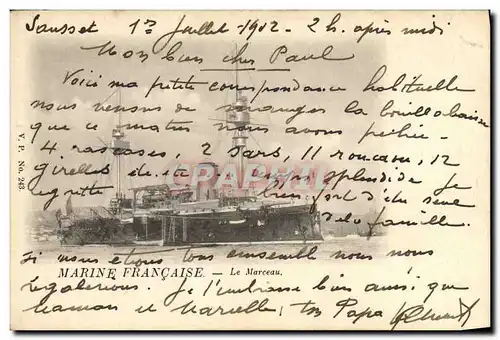 Sausset 1er Juillet - 1902 - 2 h. après midi
Mon bien cher Paul
Voici ma petite correspondance habituelle
nous venons de manger la bouillabaisse
que ce matin nous avons pechée.
4 rascasses, 2 Sars, 11 roucaou, 12
girelles etc. etc. temps splendide Je
regrette bien fort d'être seul
de la famille.
Si nous étions tous ensemble nous nous
régalerions. Je t'embrasse bien ainsi que
Maman et Marcelle, ton Papa
MARINE FRANÇAISE. — Le Marceau.
V. P. No. 243.
CPRH